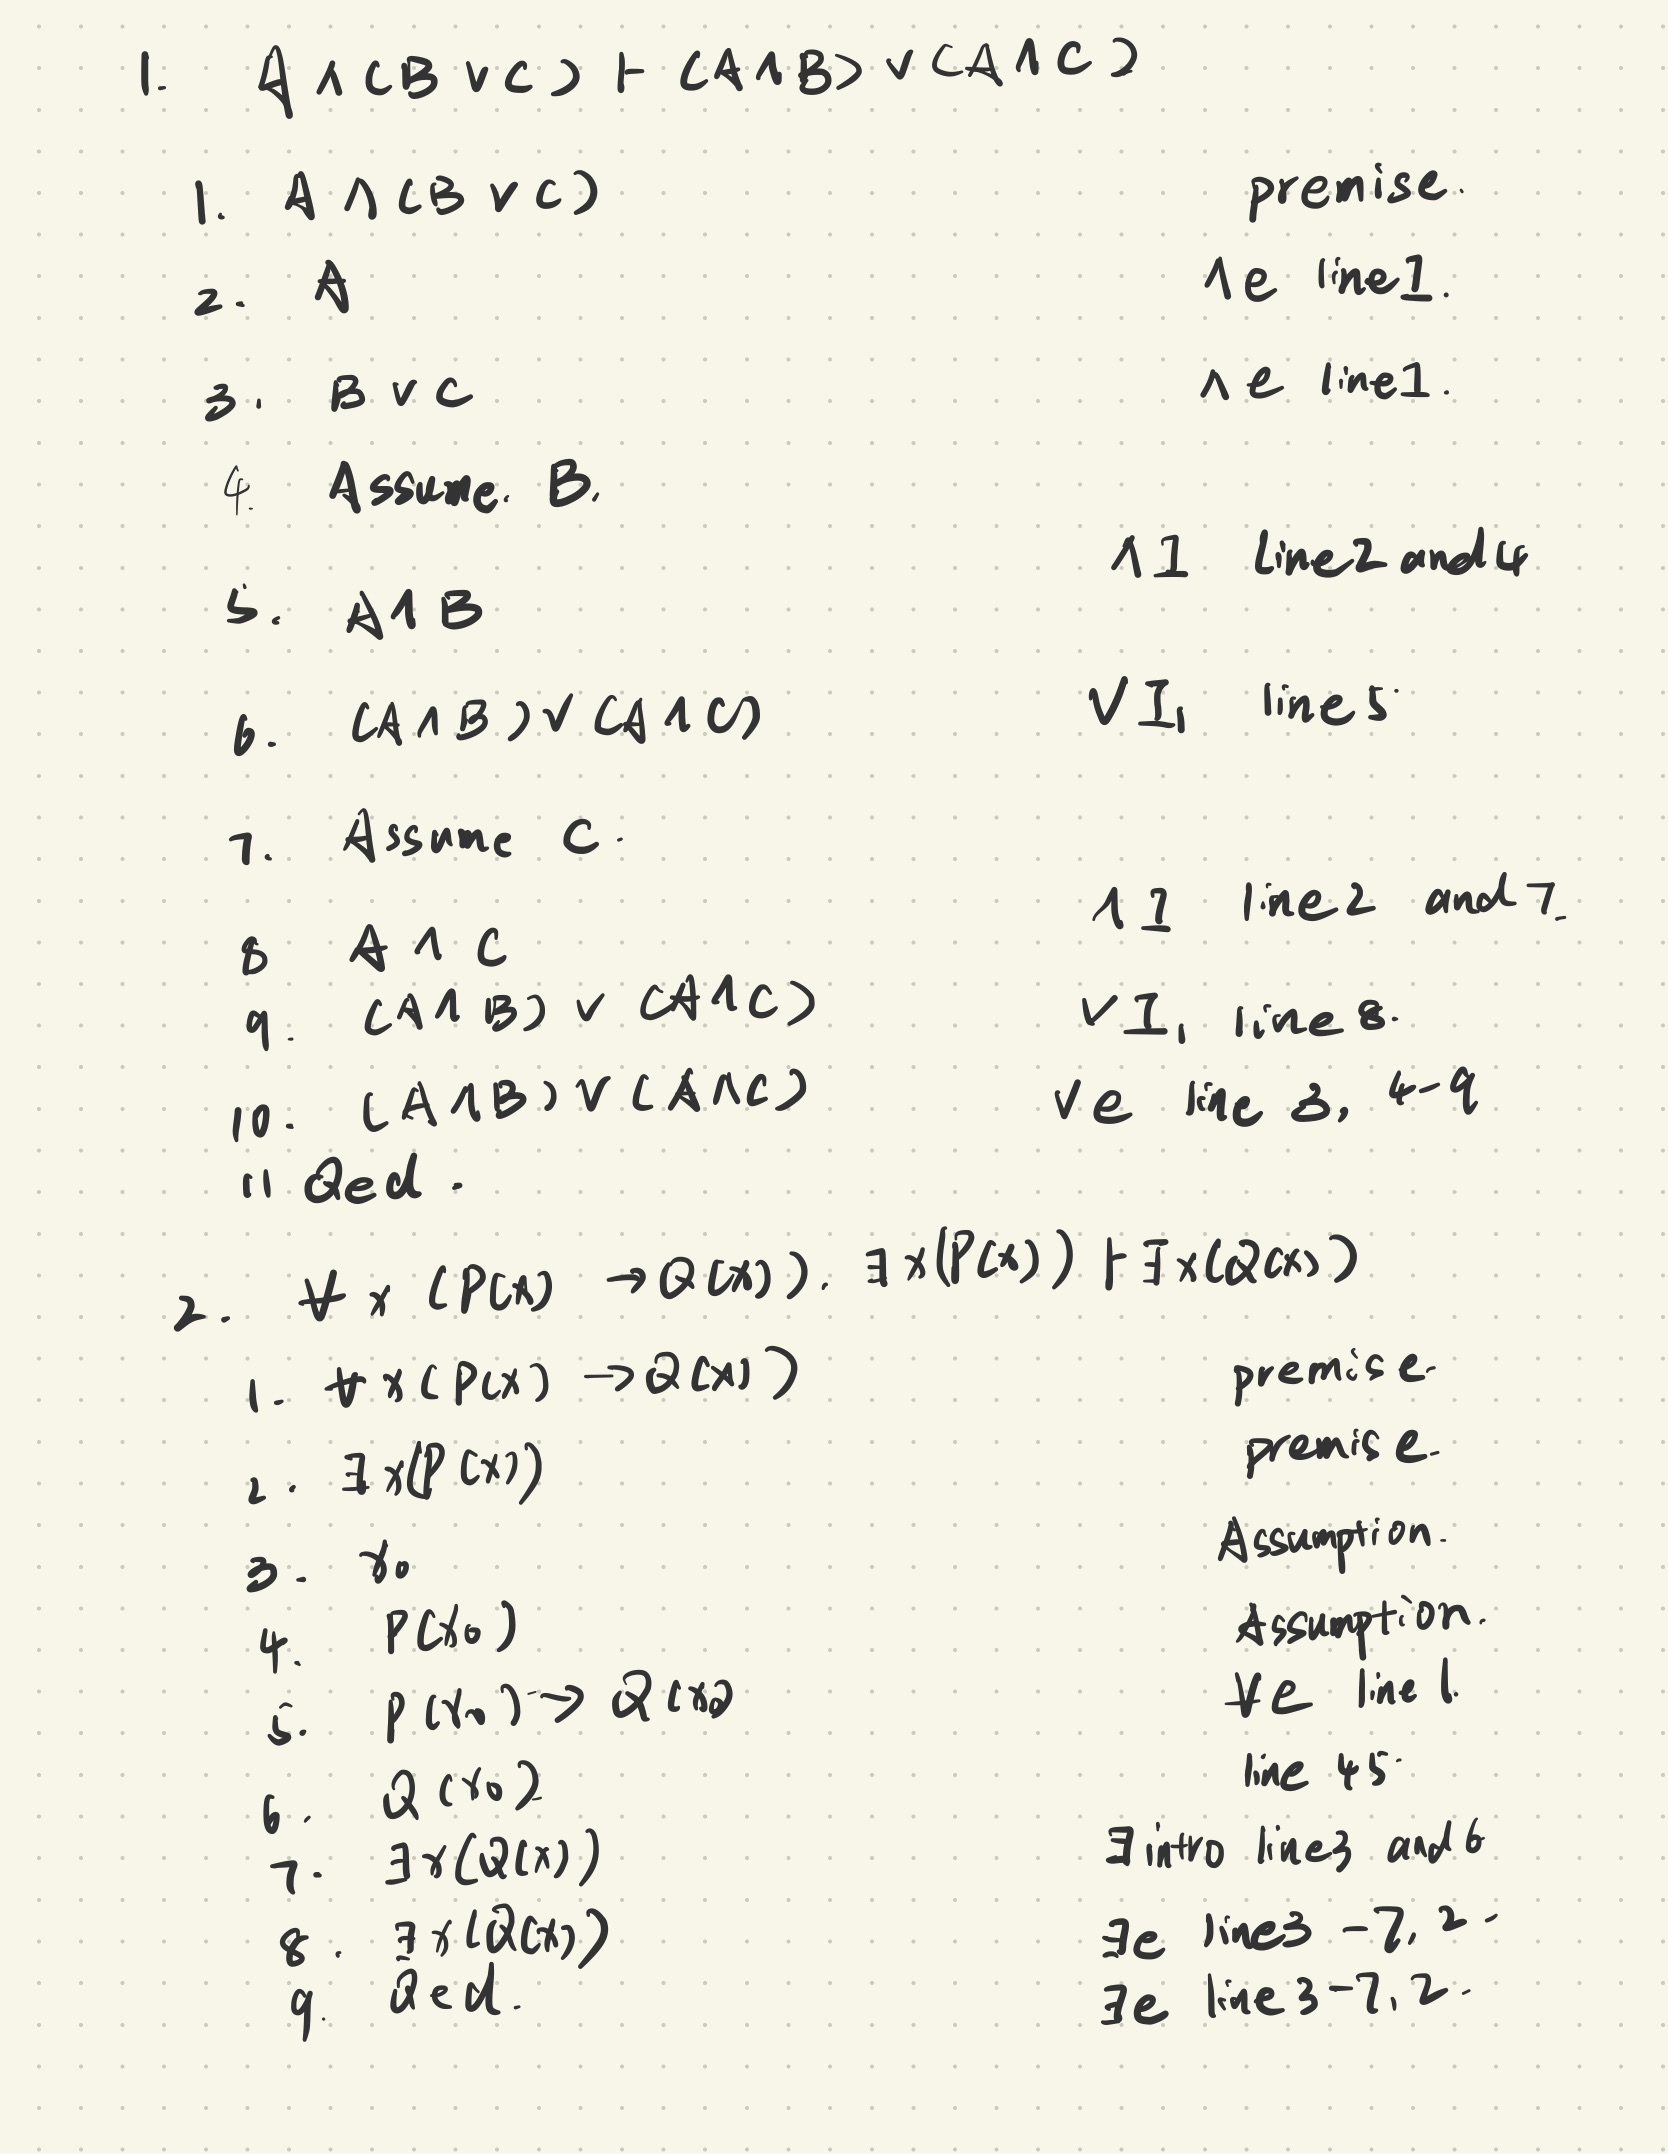 1. A ∧ (B ∨ C) ⊢ (A ∧ B) ∨ (A ∧ C)
1. A ∧ (B ∨ C) premise.
2. A ∧e line1.
3. B ∨ C ∧e line1.
4. Assume. B.
5. A ∧ B ∧I line2 and 4
6. (A ∧ B) ∨ (A ∧ C) ∨I, line5
7. Assume C.
8 A ∧ C ∧I line2 and 7.
9. (A ∧ B) ∨ (A ∧ C) ∨I, line8.
10. (A ∧ B) ∨ (A ∧ C) ∨e line 3, 4-9
11 Qed.
2. ∀x (P(x) → Q(x)). ∃x(P(x)) ⊢ ∃x(Q(x))
1. ∀x(P(x) → Q(x)) premise.
2. ∃x(P(x)) premise.
3. x₀ Assumption.
4. P(x₀) Assumption.
5. P(x₀) → Q(x₀) ∀e line 1.
6. Q(x₀) line 45.
7. ∃x(Q(x)) ∃intro line3 and 6
8. ∃x(Q(x)) ∃e line3-7, 2.
9. Qed. ∃e line3-7, 2.